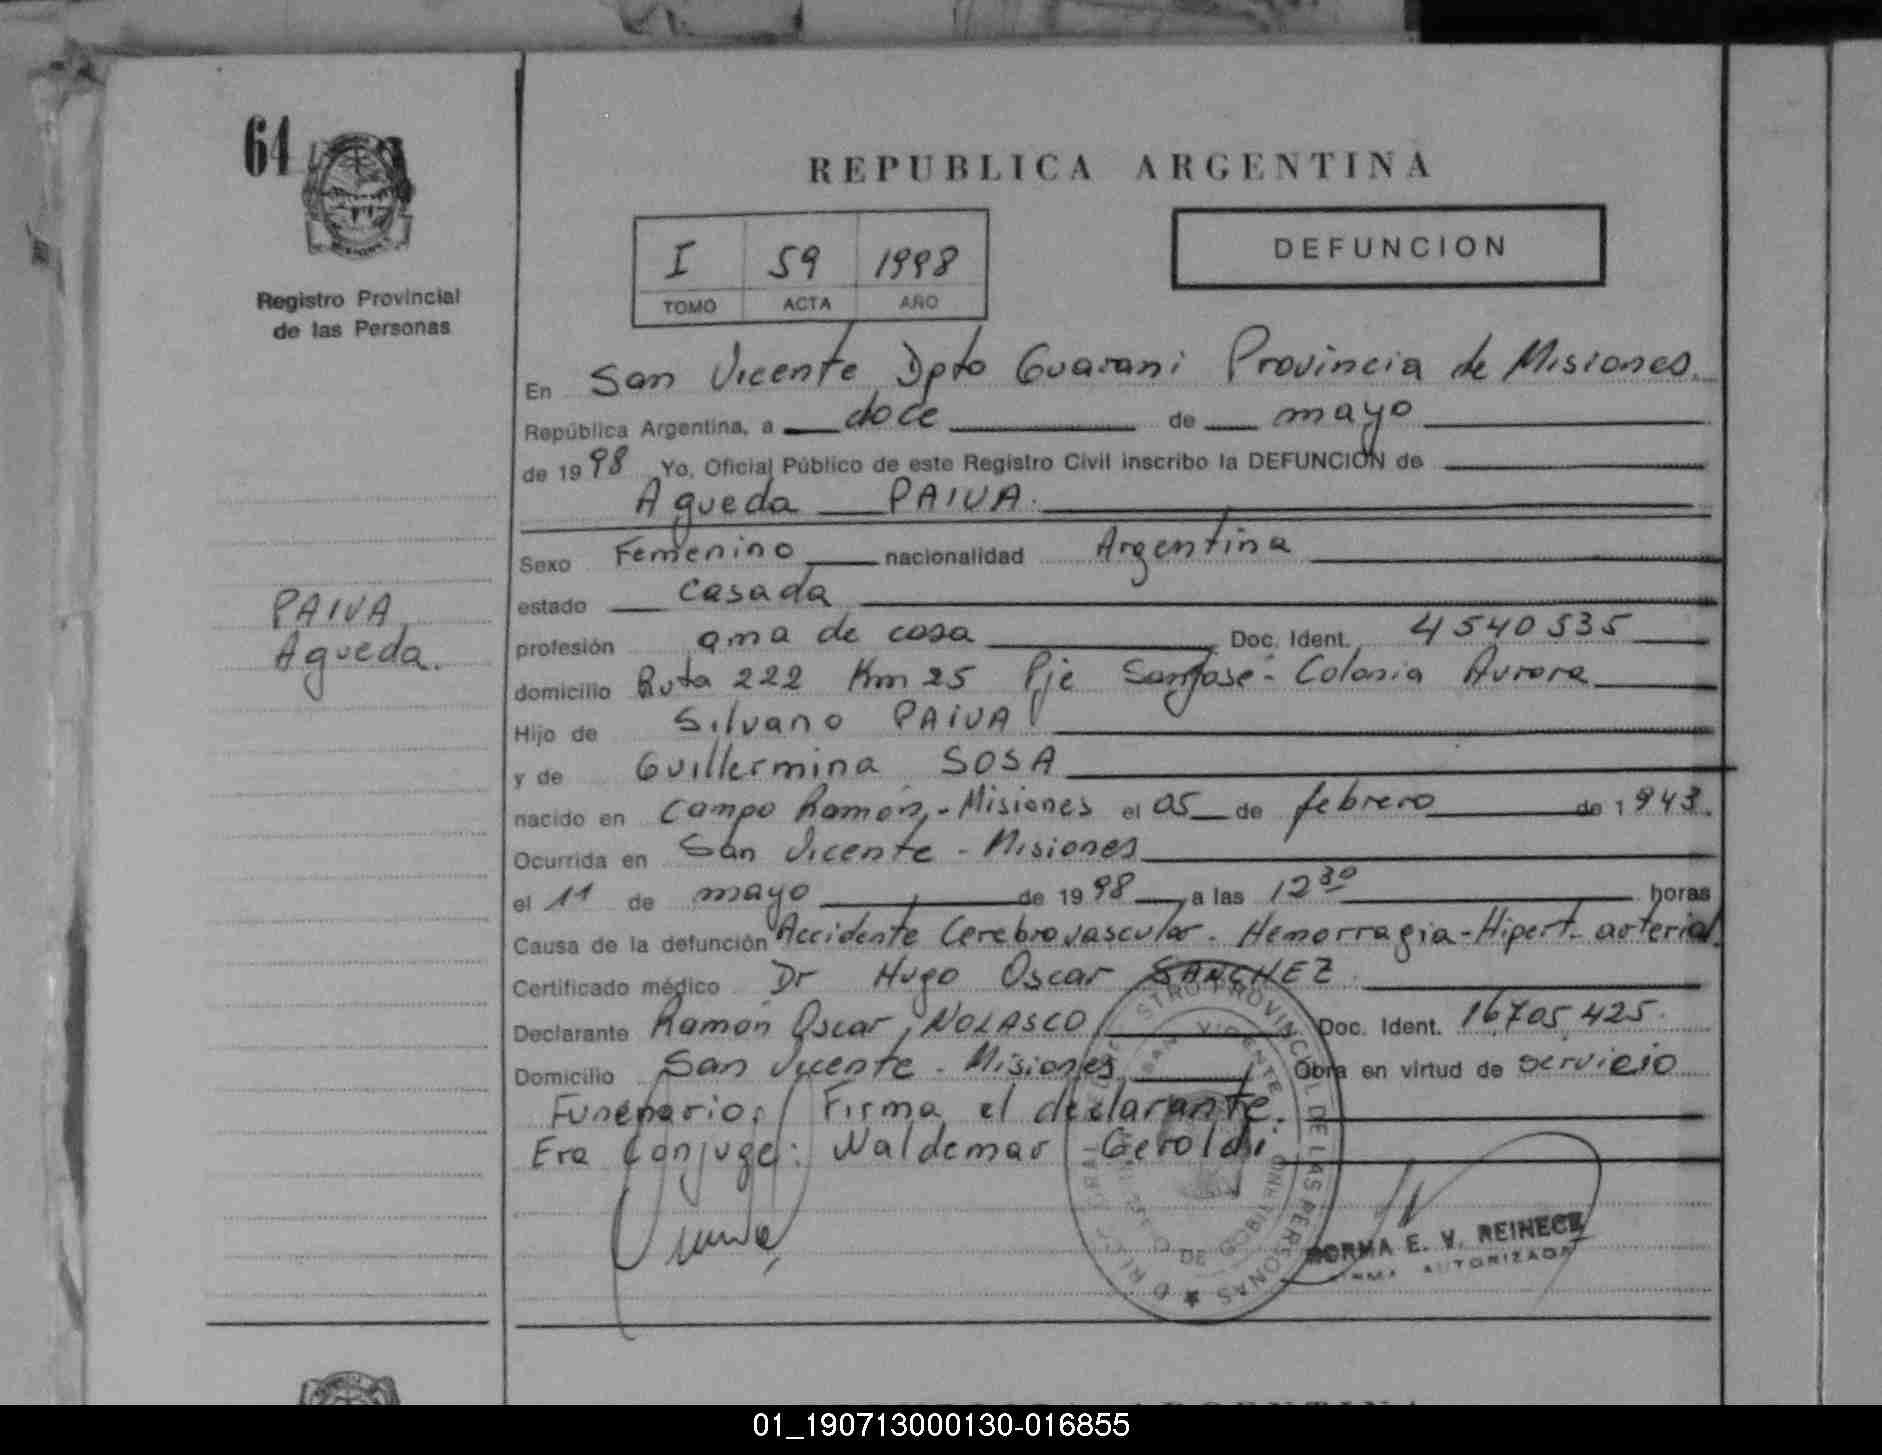 64
REPUBLICA ARGENTINA
I 59 1998
TOMO ACTA AÑO
DEFUNCION
Registro Provincial
de las Personas
En San Vicente Dpto Guarani Provincia de Misiones.
República Argentina, a doce de mayo
de 1998 Yo, Oficial Público de este Registro Civil inscribo la DEFUNCION de
Agueda PAIVA.
Sexo Femenino nacionalidad Argentina
estado casada
PAIVA
Agueda.
profesión ama de casa Doc. Ident. 4540535
domicilio Ruta 222 Km 25 Pje San José - Colonia Aurora
Hijo de Silvano PAIVA
y de Guillermina SOSA
nacido en Campo Ramón - Misiones el 05 de febrero de 1943.
Ocurrida en San Vicente - Misiones
el 11 de mayo de 1998 a las 12 30 horas
Causa de la defunción Accidente Cerebrovascular. Hemorragia - Hipert. arterial.
Certificado médico Dr Hugo Oscar SANCHEZ
Declarante Ramón Oscar NOLASCO Doc. Ident. 16.705.425.
Domicilio San Vicente - Misiones Obra en virtud de servicio
Funerario. Firma el declarante.
Era Conjuge: Waldemar Geroldi
REGISTRO PROVINCIAL DE LAS PERSONAS
SAN VICENTE
NORMA E. V. REINECK
FIRMA AUTORIZADA
01_190713000130-016855